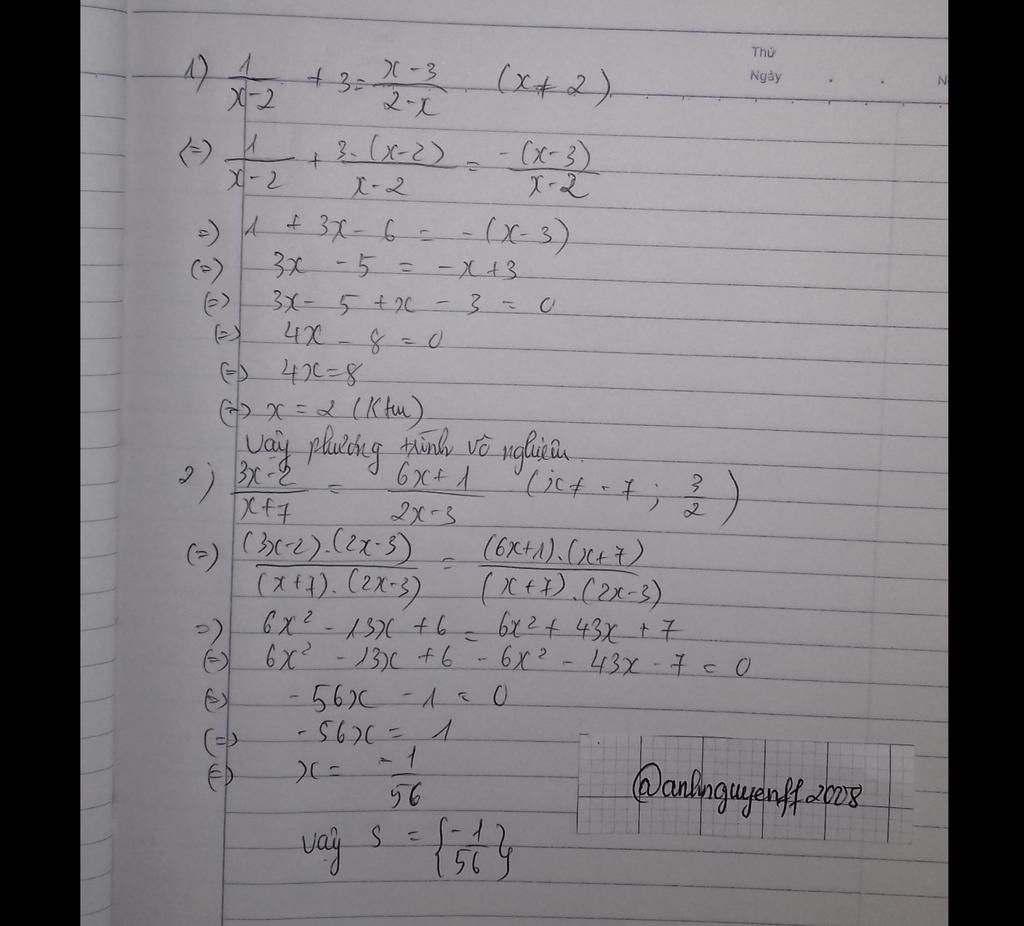 Thứ
Ngày . . N
1) 1/(x-2) + 3 = (x-3)/(2-x) (x ≠ 2)
(=) 1/(x-2) + 3.(x-2)/(x-2) = -(x-3)/(x-2)
=) 1 + 3x - 6 = -(x-3)
(=) 3x - 5 = -x + 3
(=) 3x - 5 + x - 3 = 0
(=) 4x - 8 = 0
(=) 4x = 8
(=) x = 2 (Ktm)
Vậy phương trình vô nghiệm.
2) (3x-2)/(x+7) = (6x+1)/(2x-3) (x ≠ -7 ; 3/2)
(=) (3x-2).(2x-3)/(x+7).(2x-3) = (6x+1).(x+7)/(x+7).(2x-3)
=) 6x² - 13x + 6 = 6x² + 43x + 7
(=) 6x² - 13x + 6 - 6x² - 43x - 7 = 0
(=) -56x - 1 = 0
(=) -56x = 1
(=) x = -1/56
@anhnguyenff2008
vậy S = {-1/56}